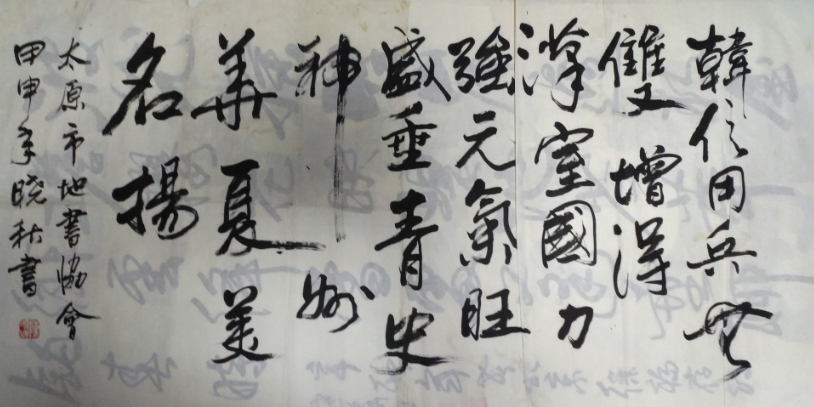 韓信田兵無
雙又增得
漢室國力
強元氣旺
盛垂青史
神州
華夏美
名揚
太原市地書協會
甲申年曉秋書